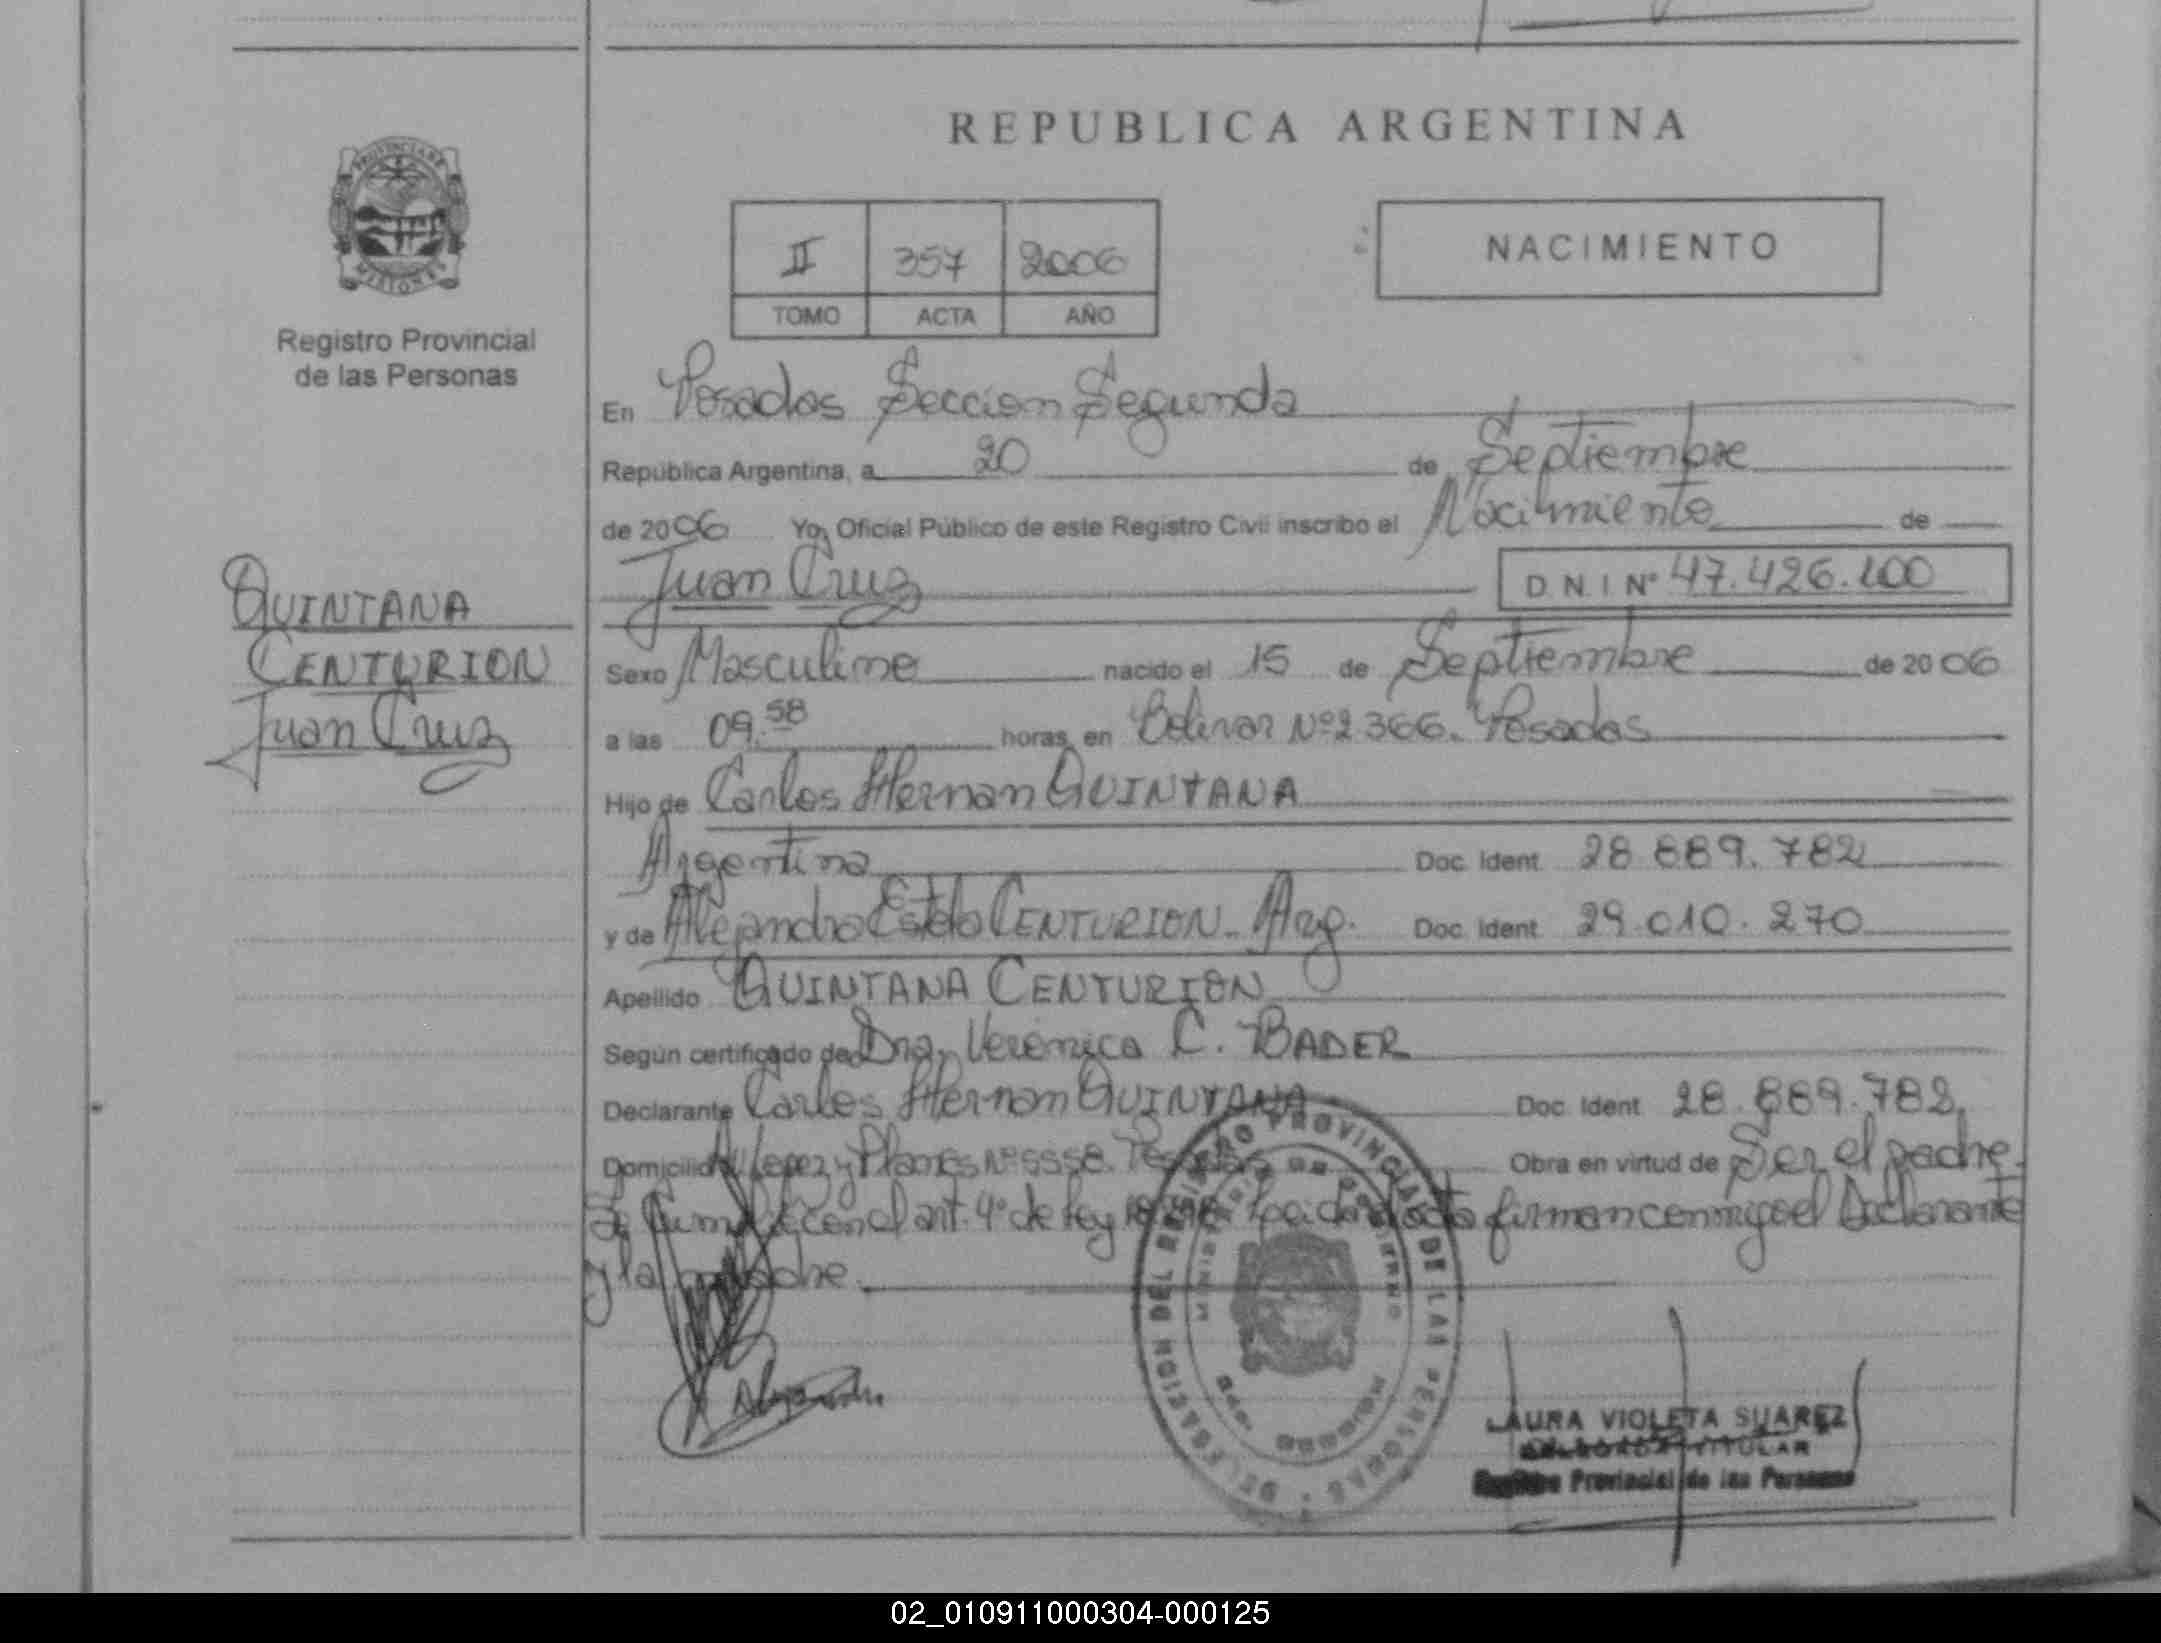 REPUBLICA ARGENTINA
PROVINCIA DE
MISIONES
Registro Provincial
de las Personas
II 357 2006
TOMO ACTA AÑO
NACIMIENTO
En Posadas Sección Segunda
República Argentina, a 20 de Septiembre
de 2006 Yo, Oficial Público de este Registro Civil inscribo el Nacimiento de
Juan Cruz D.N.I Nº 47.426.100
QUINTANA
CENTURION
Juan Cruz
Sexo Masculino nacido el 15 de Septiembre de 2006
a las 09.58 horas, en Bolivar Nº2366. Posadas
Hijo de Carlos Hernan QUINTANA
Argentina Doc. Ident. 28.889.782
y de Alejandra Estela CENTURION. Arg. Doc. Ident. 29.010.270
Apellido QUINTANA CENTURION
Según certificado de Dra. Veronica C. BADER
Declarante Carlos Hernan QUINTANA Doc. Ident. 28.889.782
Domicilio Lopez y Planes Nº5558. Posadas Obra en virtud de Ser el padre.
Se cumple con el art. 4º de Ley Leida el acta firman conmigo el Declarante
y la madre.
DELEGACION DEL REGISTRO PROVINCIAL DE LAS PERSONAS
MINISTERIO DE GOBIERNO
MISIONES
LAURA VIOLETA SUAREZ
TITULAR
Registro Provincial de las Personas
02_010911000304-000125